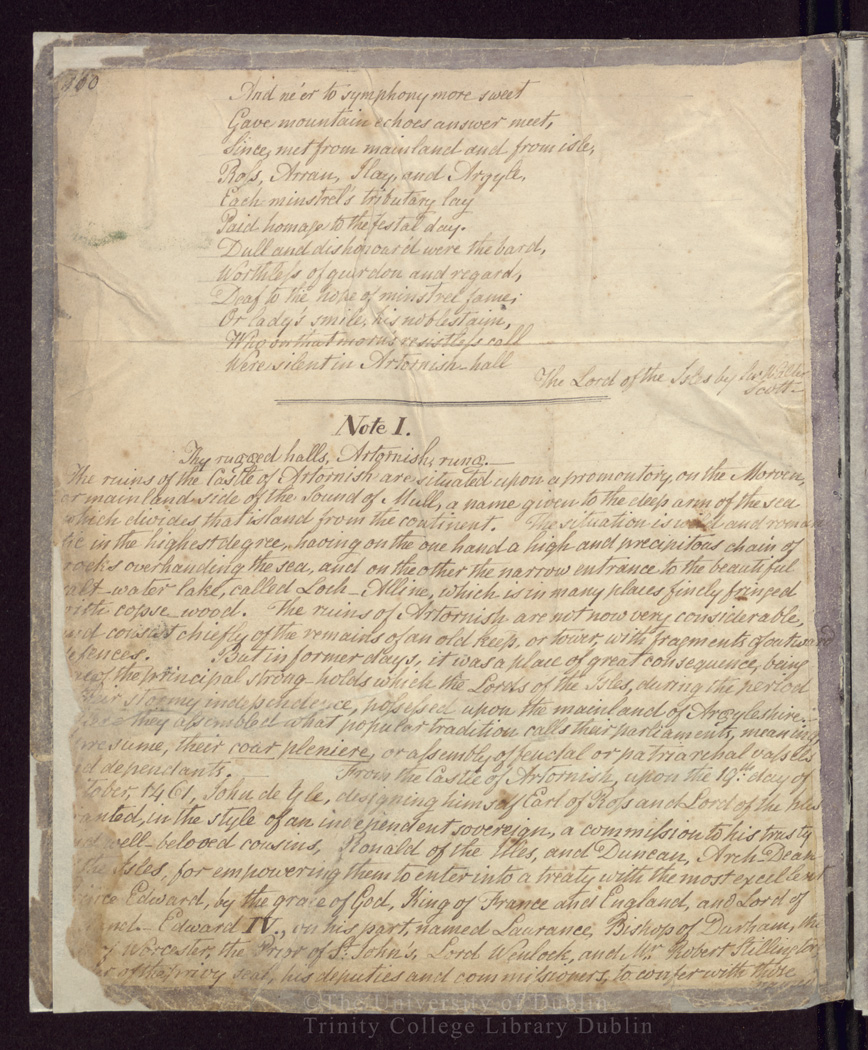 160
And ne'er to symphony more sweet
Gave mountain echoes answer meet,
Since, met from mainland and from isle,
Roſs, Arran, Ilay, and Argyle,
Each minstrel's tributary lay
Paid homage to the festal day.
Dull and dishonour'd were the bard,
Worthleſs of guerdon and regard,
Deaf to the hope of minstrel fame,
Or lady's smile, his noblest aim,
Who on that morn's resistleſs call
Were silent in Artornish hall
The Lord of the Isles by Sir Walter
Scott
Note I.
Thy rugged halls, Artornish, rung.
The ruins of the Castle of Artornish are situated upon a promontory, on the Morven,
or mainland side of the Sound of Mull, a name given to the deep arm of the sea
which divides that island from the continent. The situation is wild and roman
tic in the highest degree, having on the one hand a high and precipitous chain of
rocks overhanding the sea, and on the other the narrow entrance to the beautiful
salt-water lake, called Loch-Alline, which is in many places finely fringed
with copse-wood. The ruins of Artornish are not now very considerable,
and consist chiefly of the remains of an old keep, or tower, with fragments of outward
defences. But in former days, it was a place of great consequence, being
of the principal strong-holds which the Lords of the Isles, during the period
stormy independence, poſseſsed upon the mainland of Argyleshire.
they aſsembled what popular tradition calls their parliaments, meaning,
presume, their cour pleniere, or aſsembly of feudal or patriarchal vaſsals
and dependants. From the Castle of Artornish, upon the 19th day of
tober, 1461, John de Yle, designing himself Earl of Roſs and Lord of the Isles
anted, in the style of an independent sovereign, a commiſsion to his trusty
and well-beloved cousins, Ronald of the Isles, and Duncan, Arch-Dean
the Isles, for empowering them to enter into a treaty with the most excellent
Prince Edward, by the grace of God, King of France and England, and Lord of
Edward IV., on his part, named Laurance, Bishop of Durham, the
of Worcester, the Prior of St. John's, Lord Wenlock, and Mr. Robert Stillington,
of the privy seal, his deputies and commiſsioners, to confer with those
©The University of Dublin
Trinity College Library Dublin